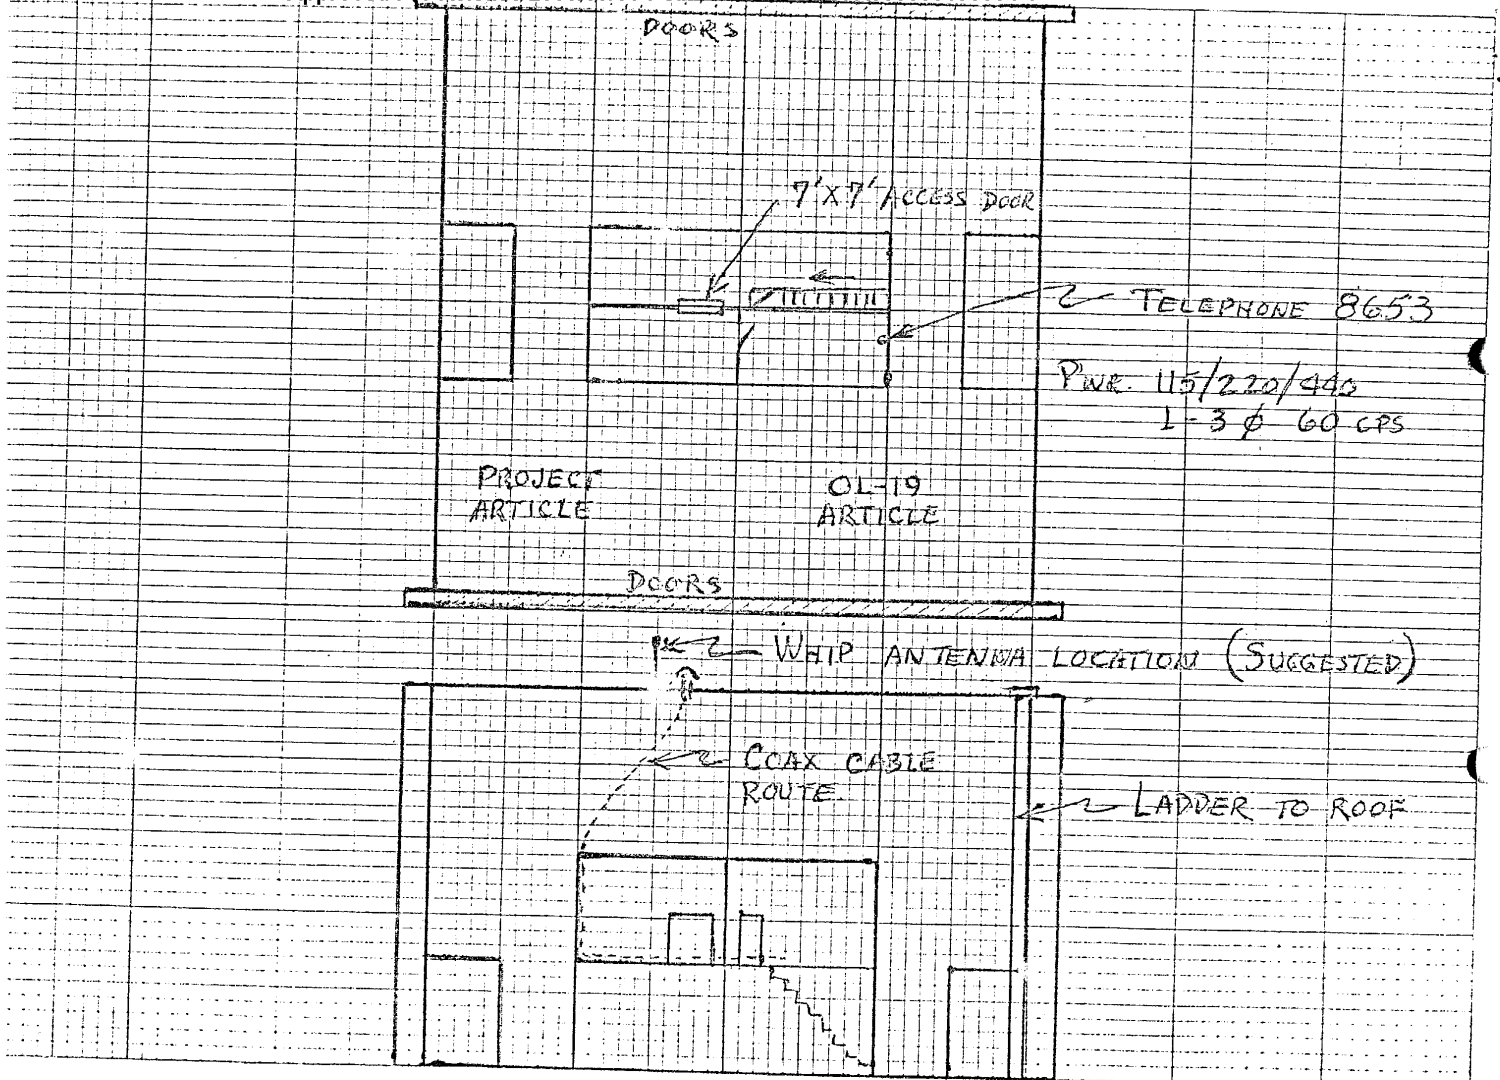 DOORS
7'X7' ACCESS DOOR
TELEPHONE 8653
PWR. 115/220/440
1-3 ϕ 60 CPS
PROJECT
ARTICLE
OL-19
ARTICLE
DOORS
WHIP ANTENNA LOCATION (SUGGESTED)
COAX CABLE
ROUTE
LADDER TO ROOF